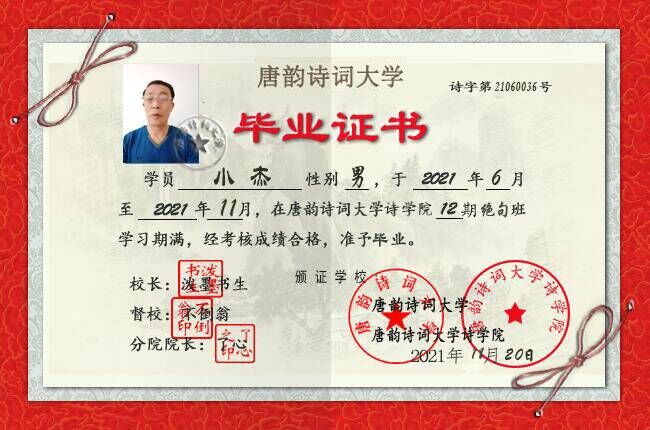 唐韵诗词大学
诗字第21060036号
毕业证书
学员 小杰 性别 男，于 2021 年 6 月
至 2021 年 11月，在唐韵诗词大学诗学院 12 期绝句班
学习期满，经考核成绩合格，准予毕业。
校长：泼墨书生
泼墨书生
颁证学校：
督校：不倒翁
不倒翁印
唐韵诗词大学
唐韵诗词大学
分院院长：了心
了心之印
唐韵诗词大学诗学院
唐韵诗词大学诗学院
2021年 11月 20日